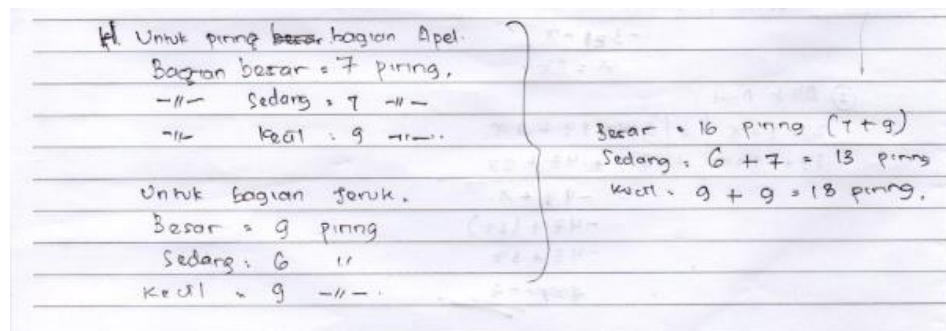 Untuk piring besar bagian Apel.
Bagian besar = 7 piring.
-〃- Sedang = 7 -〃-
-〃- Kecil = 9 -〃-.
Untuk bagian Jeruk.
Besar = 9 piring
Sedang = 6 〃
Kecil = 9 -〃-.
Besar = 16 piring (7+9)
Sedang = 6 + 7 = 13 piring
Kecil = 9 + 9 = 18 piring.